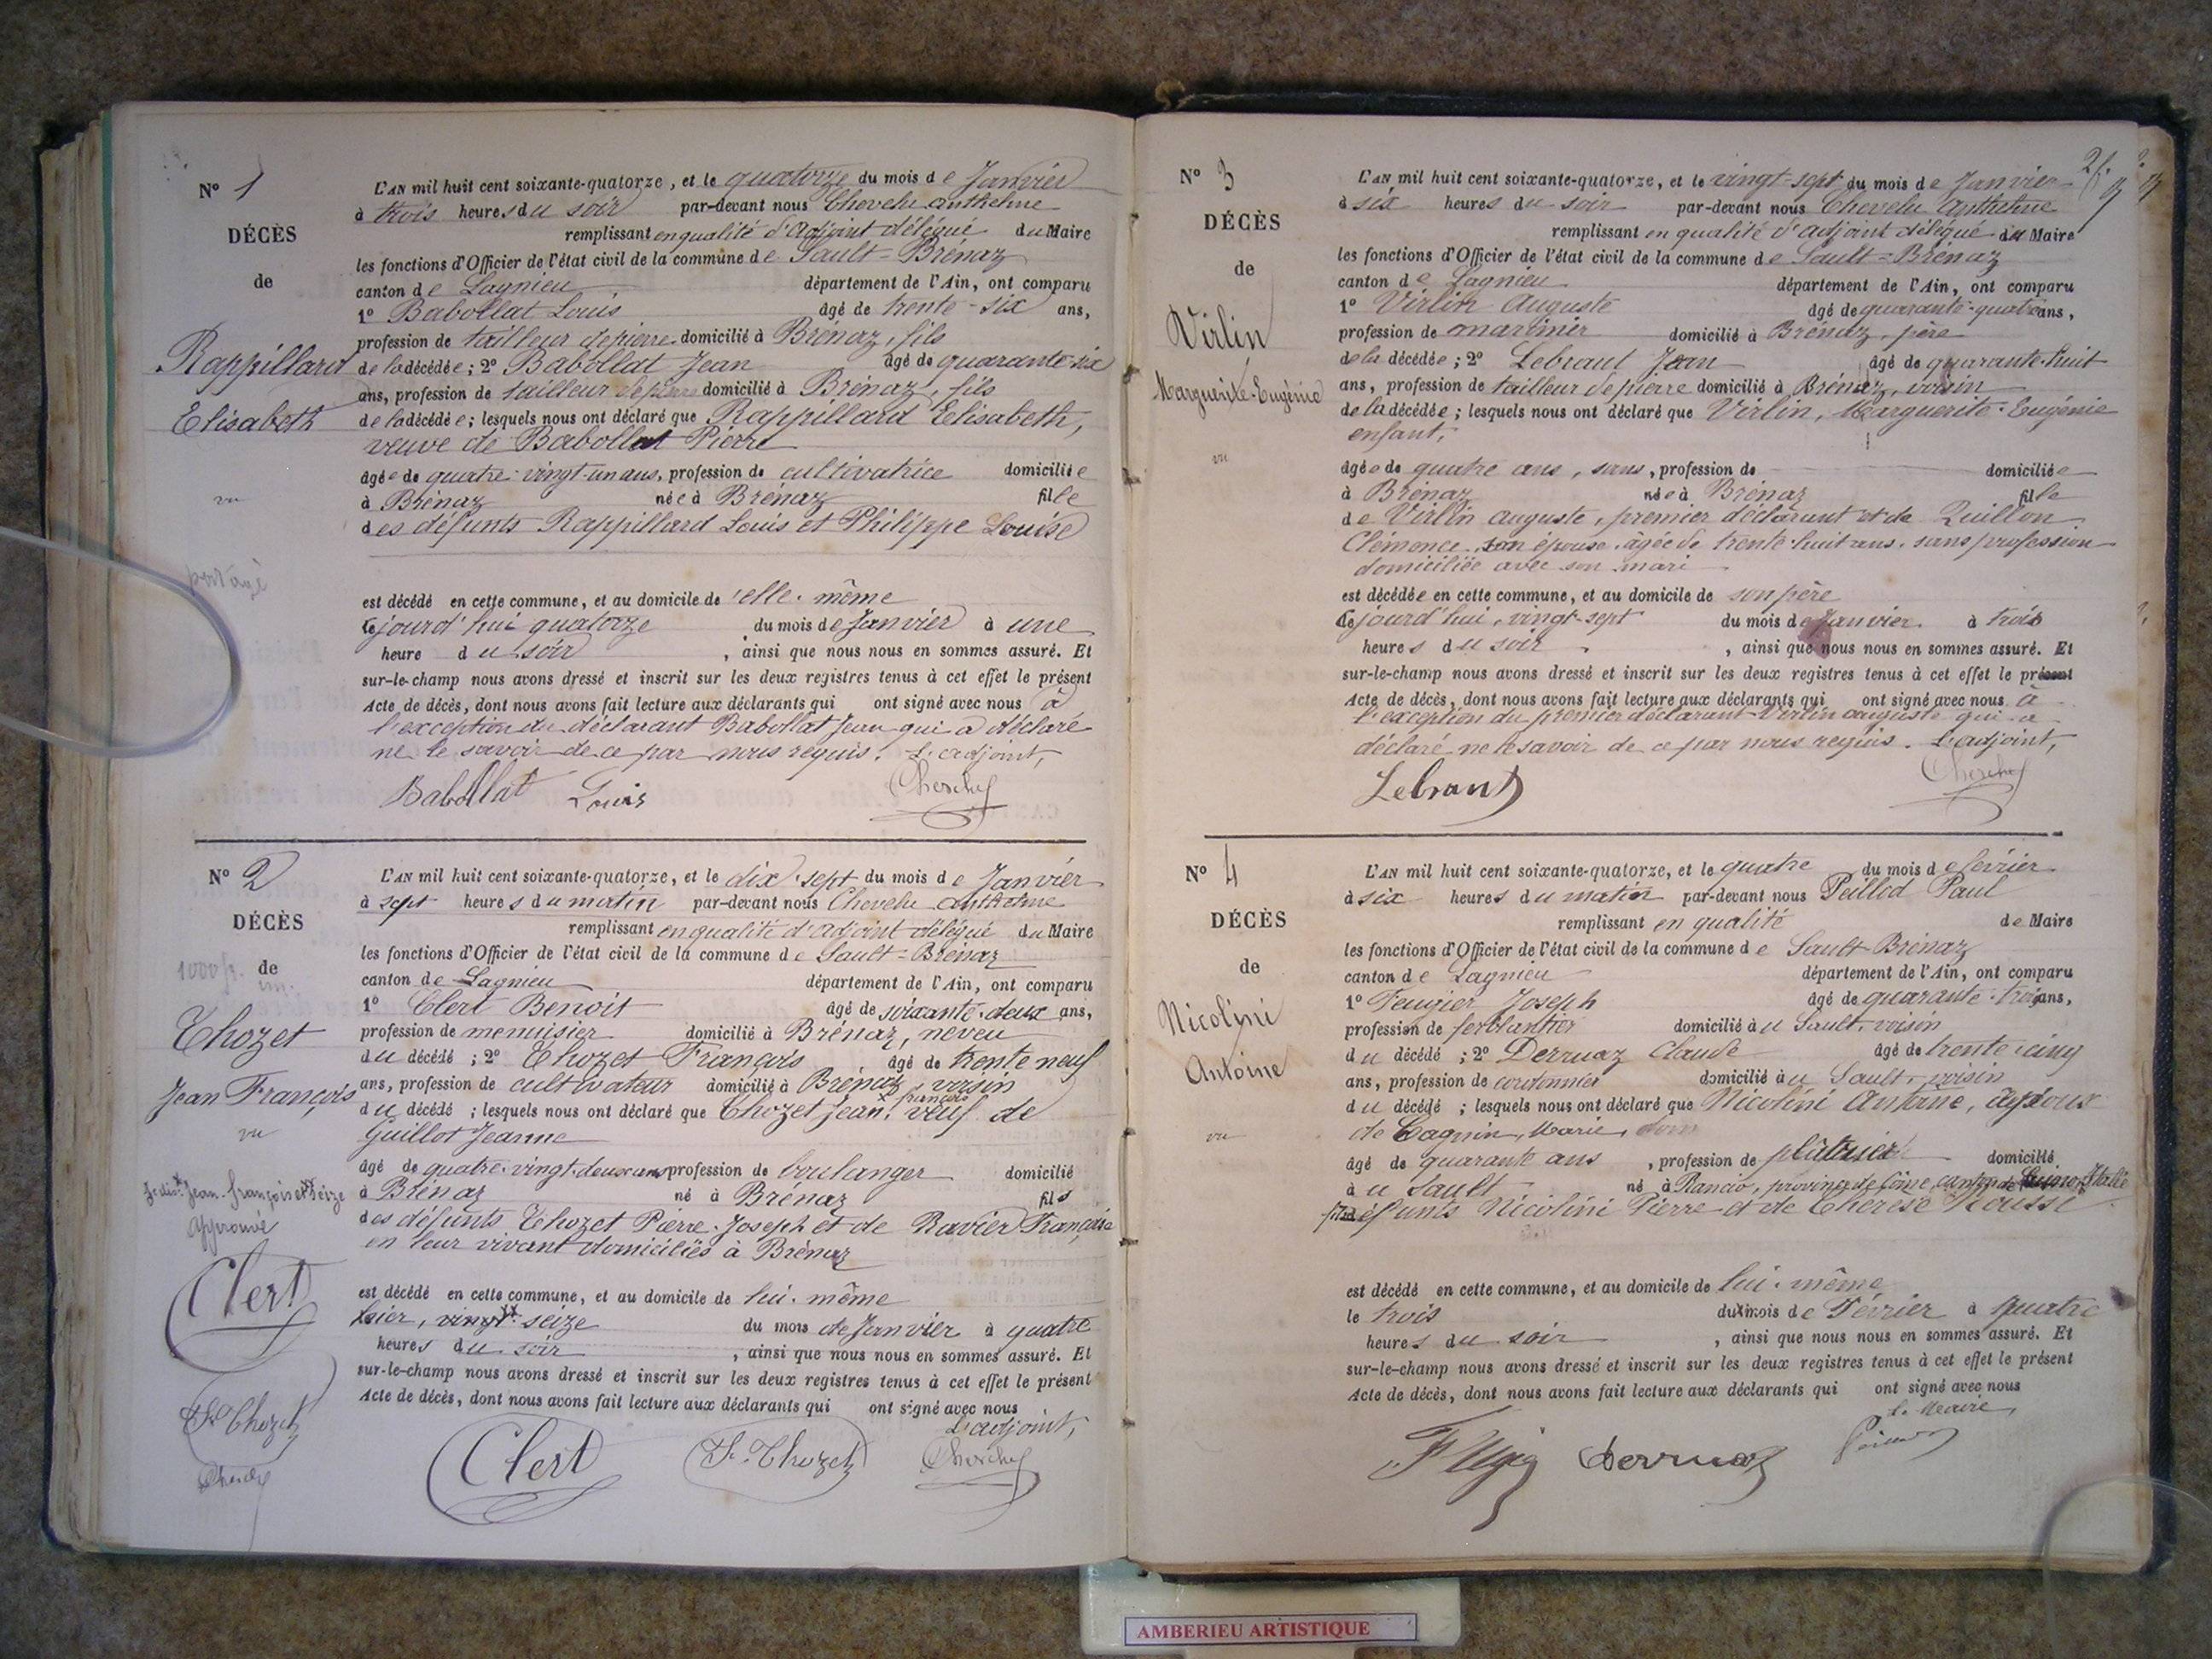 N° 1
DÉCÈS
de
Rappillard
Elisabeth
vu
partagé
L'AN mil huit cent soixante-quatorze, et le quatorze du mois de Janvier
à trois heures du soir par-devant nous Chevelu anthelme
remplissant en qualité d'adjoint délégué du Maire
les fonctions d'Officier de l'état civil de la commune de Sault-Brénaz
canton de Lagnieu département de l'Ain, ont comparu
1° Babollat Louis âgé de trente-six ans,
profession de tailleur de pierre domicilié à Brénaz, fils
de la décédée; 2° Babollat Jean âgé de quarante-six
ans, profession de tailleur de pierre domicilié à Brénaz, fils
de la décédée; lesquels nous ont déclaré que Rappillard Elisabeth,
veuve de Babollat Pierre
âgée de quatre-vingt-un ans, profession de cultivatrice domiciliée
à Brénaz née à Brénaz fille
des défunts Rappillard Louis et Philippe Louise
est décédé en cette commune, et au domicile de elle-même
cejourd'hui quatorze du mois de Janvier à une
heure du soir, ainsi que nous nous en sommes assuré. Et
sur-le-champ nous avons dressé et inscrit sur les deux registres tenus à cet effet le présent
Acte de décès, dont nous avons fait lecture aux déclarants qui ont signé avec nous à
l'exception du déclarant Babollat Jean qui a déclaré
ne le savoir de ce par nous requis. L'adjoint,
Babollat Louis
N° 2
DÉCÈS
1000 fr. de
Thozet
Jean François
vu
Jean-françois et seize
Approuvé
Clert
Fr. Thozet
L'AN mil huit cent soixante-quatorze, et le dix-sept du mois de Janvier
à sept heures du matin par-devant nous Chevelu anthelme
remplissant en qualité d'adjoint délégué du Maire
les fonctions d'Officier de l'état civil de la commune de Sault-Brénaz
canton de Lagnieu département de l'Ain, ont comparu
1° Clert Benoit âgé de soixante-deux ans,
profession de menuisier domicilié à Brénaz, neveu
du décédé; 2° Thozet François âgé de trente neuf
ans, profession de cultivateur domicilié à Brénaz, voisin
du décédé; lesquels nous ont déclaré que Thozet Jean françois veuf de
Guillot Jeanne
âgé de quatre-vingt-deux ans profession de boulanger domicilié
à Brénaz né à Brénaz fils
des défunts Thozet Pierre-Joseph et de Ravier Françoise
en leur vivant domiciliés à Brénaz
est décédé en cette commune, et au domicile de lui-même
hier, vingt seize du mois de Janvier à quatre
heures du soir, ainsi que nous nous en sommes assuré. Et
sur-le-champ nous avons dressé et inscrit sur les deux registres tenus à cet effet le présent
Acte de décès, dont nous avons fait lecture aux déclarants qui ont signé avec nous
L'adjoint,
Clert Fr. Thozet
N° 3
DÉCÈS
de
Virlin
Marguerite-Eugénie
vu
L'AN mil huit cent soixante-quatorze, et le vingt-sept du mois de Janvier
à six heures du soir par-devant nous Chevelu Anthelme
remplissant en qualité d'adjoint délégué du Maire
les fonctions d'Officier de l'état civil de la commune de Sault-Brénaz
canton de Lagnieu département de l'Ain, ont comparu
1° Virlin Auguste âgé de quarante-quatre ans,
profession de marinier domicilié à Brénaz, père
de la décédée; 2° Lebraut Jean âgé de quarante-huit
ans, profession de tailleur de pierre domicilié à Brénaz, voisin
de la décédée; lesquels nous ont déclaré que Virlin, Marguerite-Eugénie
enfant,
âgée de quatre ans, sans, profession de domiciliée
à Brénaz née à Brénaz fille
de Virlin auguste, premier déclarant et de Quillon
Clémence, son épouse, âgée de trente-huit ans, sans profession
domiciliée avec son mari
est décédée en cette commune, et au domicile de son père
cejourd'hui, vingt-sept du mois de Janvier à trois
heures du soir, ainsi que nous nous en sommes assuré. Et
sur-le-champ nous avons dressé et inscrit sur les deux registres tenus à cet effet le présent
Acte de décès, dont nous avons fait lecture aux déclarants qui ont signé avec nous à
l'exception du premier déclarant Virlin auguste qui a
déclaré ne le savoir de ce par nous requis. L'adjoint,
Lebraut
N° 4
DÉCÈS
de
Nicolini
Antoine
vu
L'AN mil huit cent soixante-quatorze, et le quatre du mois de février
à six heures du matin par-devant nous Peillod Paul
remplissant en qualité de Maire
les fonctions d'Officier de l'état civil de la commune de Sault-Brénaz
canton de Lagnieu département de l'Ain, ont comparu
1° Feugier Joseph âgé de quarante-trois ans,
profession de ferblantier domicilié au Sault, voisin
du décédé; 2° Derruaz Claude âgé de trente-cinq
ans, profession de cordonnier domicilié au Sault, voisin
du décédé; lesquels nous ont déclaré que Nicolini Antoine, époux
de Cagnin, Marie,
âgé de quarante ans, profession de plâtrier domicilié
au Sault né à Rancio, province de Côme, canton de Italie
défunts Nicolini Pierre et de Thérèse Rousse
est décédé en cette commune, et au domicile de lui-même
le trois du mois de Février à quatre
heures du soir, ainsi que nous nous en sommes assuré. Et
sur-le-champ nous avons dressé et inscrit sur les deux registres tenus à cet effet le présent
Acte de décès, dont nous avons fait lecture aux déclarants qui ont signé avec nous
Le Maire,
Derruaz
AMBERIEU ARTISTIQUE